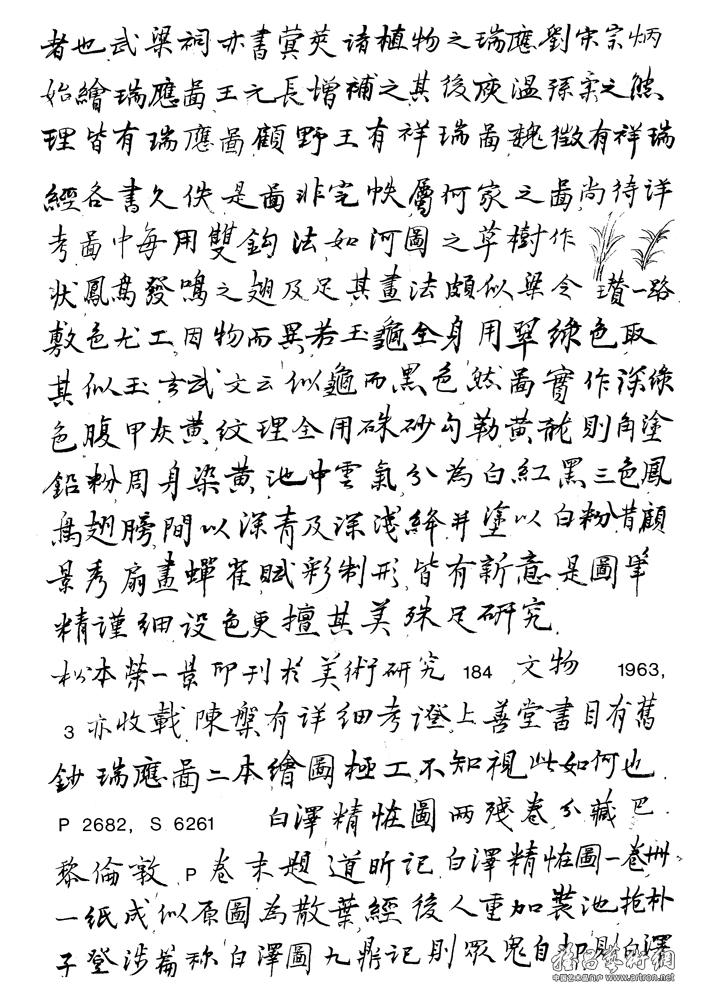 者也武梁祠亦書蓂莢诸植物之瑞應劉宋宗炳
始繪瑞應啚王元長增補之其後庾溫孫柔之熊
理皆有瑞應啚顧野王有祥瑞啚魏徵有祥瑞
經各書久佚是啚非完帙屬何家之啚尚待详
考啚中每用雙鈎法如河圖之草樹作
狀鳳鳥發鳴之翅及足其畫法頗似梁令瓚一路
敷色尤工因物而異若玉龜全身用翠綠色取
其似玉玄武文云似龜而黑色然啚實作深綠
色腹甲灰黄紋理全用硃砂勾勒黄龍則角塗
鉛粉周身染黄池中雲氣分為白紅黑三色鳳
鳥翅膀間以深青及深淺絳并塗以白粉昔顧
景秀扇畫蟬雀賦彩制形皆有新意是圖筆
精謹細设色更擅其美殊足研究
松本榮一景印刊於美術研究 184 文物 1963,
3 亦收載陳槃有详细考證上善堂書目有舊
鈔瑞應啚二本繪圖極工不知視此如何也
P 2682, S 6261 白澤精恠圖两殘卷分藏巴
黎倫敦P卷末題道昕記白澤精恠圖一卷卌
一紙成似原圖為散葉經後人重加裝池抱朴
子登涉篇称白澤圖九鼎記則眾鬼自却則白澤
雅昌藝術網
中国艺术品门户 www.artron.net